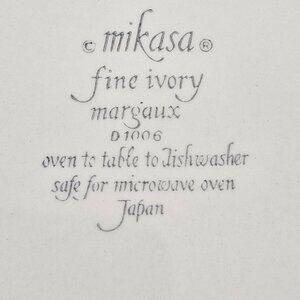 © mikasa ®
fine ivory
margaux
D1006
oven to table to dishwasher
safe for microwave oven
Japan